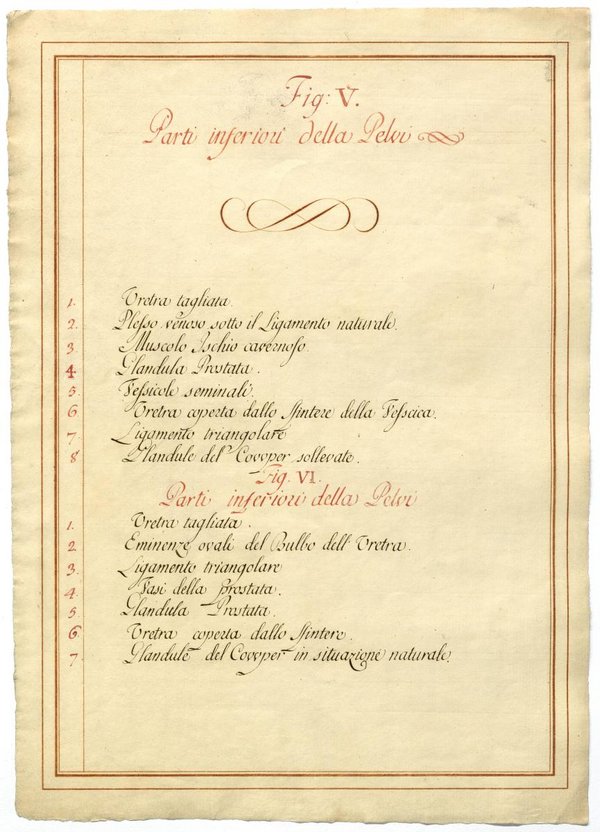 Fig: V.
Parti inferiori della Pelvi
1. Vretra tagliata.
2. Plesso venoso sotto il Ligamento naturale.
3. Muscolo Ischio cavernoso
4. Glandula Prostata.
5. Vessicole seminali.
6. Vretra coperta dallo sfintere della Vesscica.
7. Ligamento triangolare
8. Glandule del Covvper sollevate.
Fig. VI.
Parti inferiori della Pelvi
1. Vretra tagliata.
2. Eminenze ovali del Bulbo dell' Vretra.
3. Ligamento triangolare
4. Vasi della prostata.
5. Glandula Prostata.
6. Vretra coperta dallo sfintere.
7. Glandule del Covvper in situazione naturale.